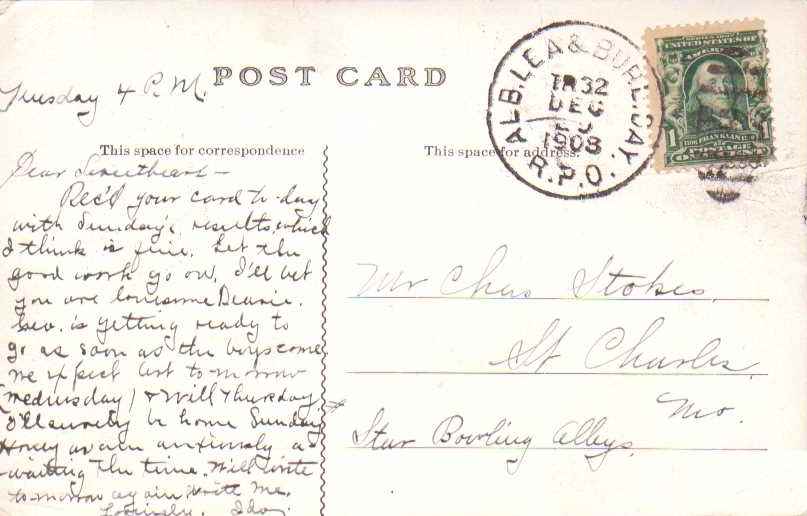 POST CARD
Tuesday 4 P.M.
This space for correspondence
This space for address.
ALB. LEA & BURL. DAY.
TR 32
DEC
1908
R.P.O.
UNITED STATES OF AMERICA
1 FRANKLIN 1
POSTAGE
ONE CENT
Dear Sweetheart—
Rec'd your card to-day
with Sunday's results, which
I think is fine. Let the
good work go on. I'll bet
you are lonesome Dearie.
Geo. is getting ready to
go as soon as the boys come,
we expect to-morrow
(Wednesday) & Will Thursday.
I'll surely be home Sunday
Honey anxiously a-
waiting the time. Will write
to-morrow again Write me.
Lovingly, Ida.
Mr Chas Stokes.
St Charles.
Mo.
Star Bowling Alleys.